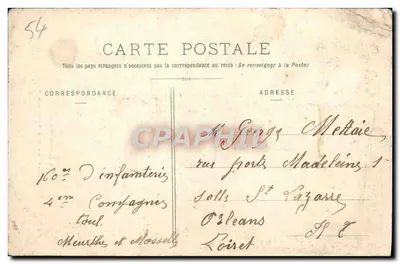 54
CARTE POSTALE
Tous les pays étrangers n'acceptent pas la correspondance au recto (Se renseigner à la Poste)
CORRESPONDANCE
ADRESSE
160em D'infanterie
4em Compagnie
toul
Meurthe et Moselle
Mr George Metaie
rue porte Madeleine 1
salle St Lazarre
Orleans
Loiret
CPAPHIL